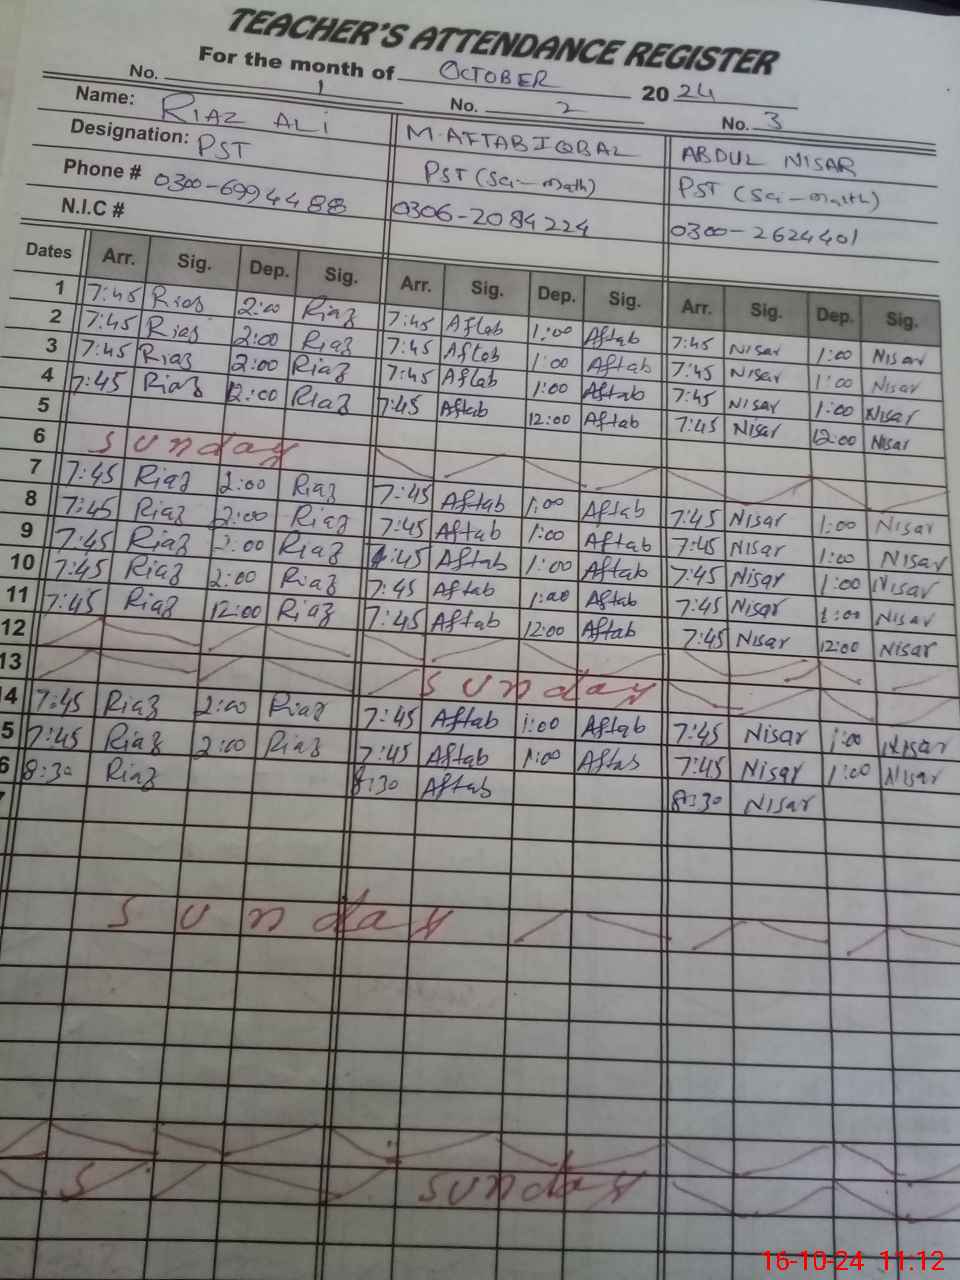 TEACHER'S ATTENDANCE REGISTER
For the month of OCTOBER 2024
No. 1 No. 2 No. 3
Name: RIAZ ALI M. AFTAB IQBAL ABDUL NISAR
Designation: PST PST (Sci-math) PST (Sci-math)
Phone # 0300-6994488 0306-2084224 0300-2624401
N.I.C #
Dates Arr. Sig. Dep. Sig. Arr. Sig. Dep. Sig. Arr. Sig. Dep. Sig.
1 7:45 Riaz 2:00 Riaz 7:45 Aftab 1:00 Aftab 7:45 Nisar 1:00 Nisar
2 7:45 Riaz 2:00 Riaz 7:45 Aftab 1:00 Aftab 7:45 Nisar 1:00 Nisar
3 7:45 Riaz 2:00 Riaz 7:45 Aftab 1:00 Aftab 7:45 Nisar 1:00 Nisar
4 7:45 Riaz 12:00 Riaz 7:45 Aftab 12:00 Aftab 7:45 Nisar 12:00 Nisar
5
6 Sunday
7 7:45 Riaz 2:00 Riaz 7:45 Aftab 1:00 Aftab 7:45 Nisar 1:00 Nisar
8 7:45 Riaz 2:00 Riaz 7:45 Aftab 1:00 Aftab 7:45 Nisar 1:00 Nisar
9 7:45 Riaz 2:00 Riaz 7:45 Aftab 1:00 Aftab 7:45 Nisar 1:00 Nisar
10 7:45 Riaz 2:00 Riaz 7:45 Aftab 1:00 Aftab 7:45 Nisar 1:00 Nisar
11 7:45 Riaz 12:00 Riaz 7:45 Aftab 12:00 Aftab 7:45 Nisar 12:00 Nisar
12
13 Sunday
14 7:45 Riaz 2:00 Riaz 7:45 Aftab 1:00 Aftab 7:45 Nisar 1:00 Nisar
5 7:45 Riaz 2:00 Riaz 7:45 Aftab 1:00 Aftab 7:45 Nisar 1:00 Nisar
6 8:30 Riaz 8:30 Aftab 8:30 Nisar
Sunday
S Sunday
16-10-24 11:12